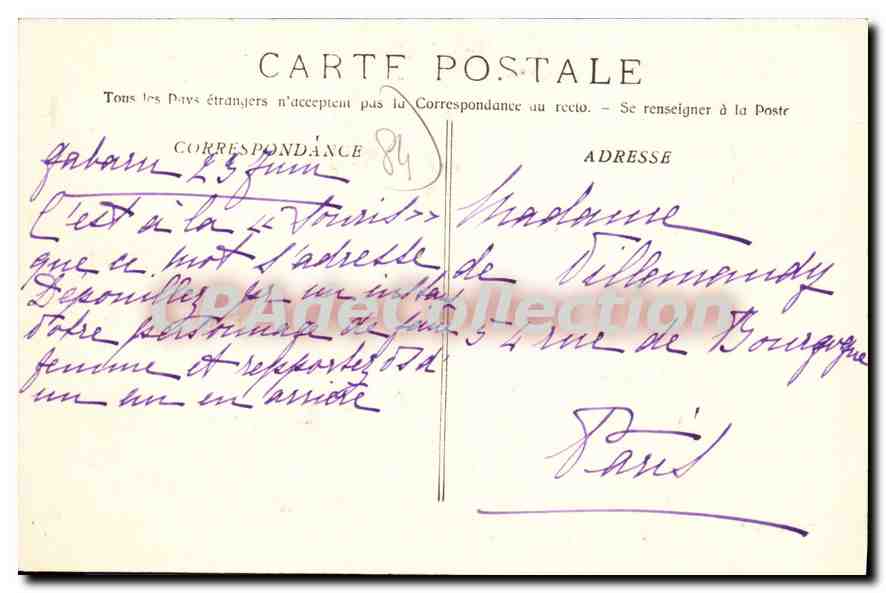 CARTE POSTALE
Tous les Pays étrangers n'acceptent pas la Correspondance au recto. - Se renseigner à la Poste
CORRESPONDANCE
84
23 Juin
C'est à la « Souris »
que ce mot s'adresse
Dépouillez pr un instant
votre personnage de
femme et reportez vs d'
un an en arrière
ADRESSE
Madame
de Villemandy
54 rue de Bourgogne
Paris
CPArteCollection